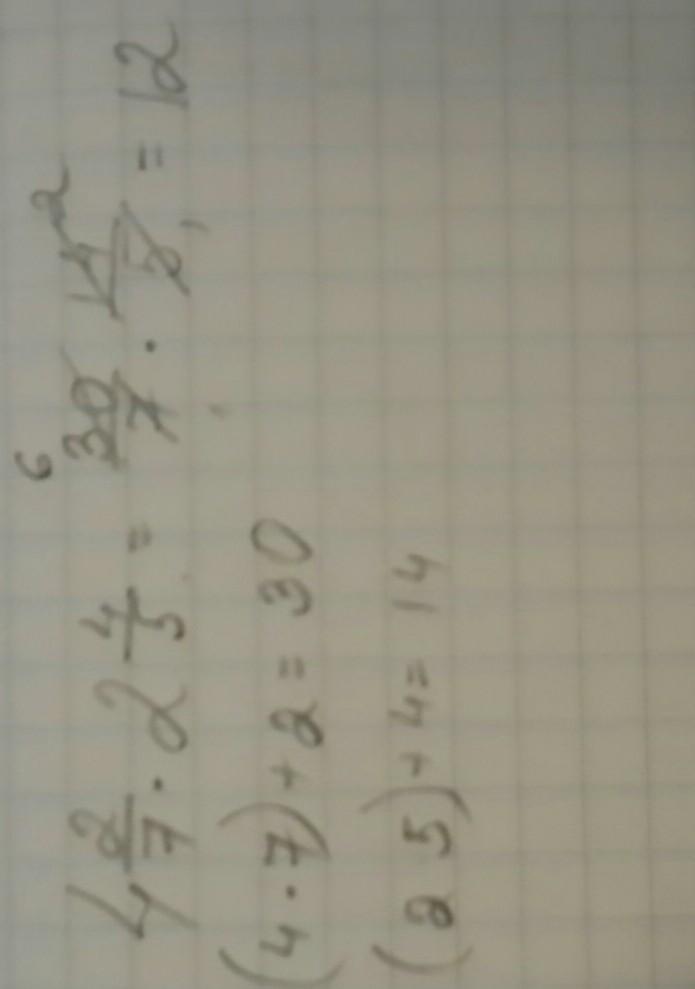 4 2/7 · 2 4/5 = 30/7 · 14/5 = 12
6 2 1
(4 · 7) + 2 = 30
(2 5) + 4 = 14